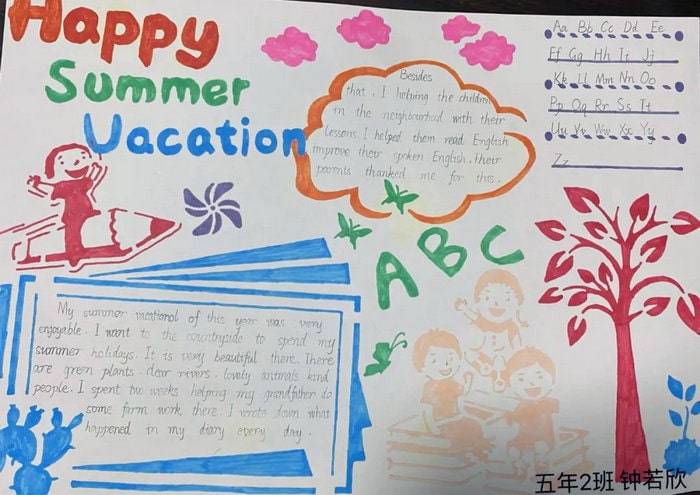 Happy
Summer
Vacation
Aa Bb Cc Dd Ee
Ff Gg Hh Ii Jj
Kk Ll Mm Nn Oo
Pp Qq Rr Ss Tt
Uu Vv Ww Xx Yy
Zz
Besides
that , I helping the children
in the neighbourhood with their
lessons I helped them read English
improve their spoken English. Their
parents thanked me for this.
A B C
My summer vacational of this year was very
enjoyable. I want to the countryside to spend my
summer holidays. It is very beautiful there. There
are green plants . dear rivers . lovely animals kind
people. I spent two weeks helping my grandfather do
some farm work there. I wrote down what
happened in my diary every day .
五年2班 钟若欣